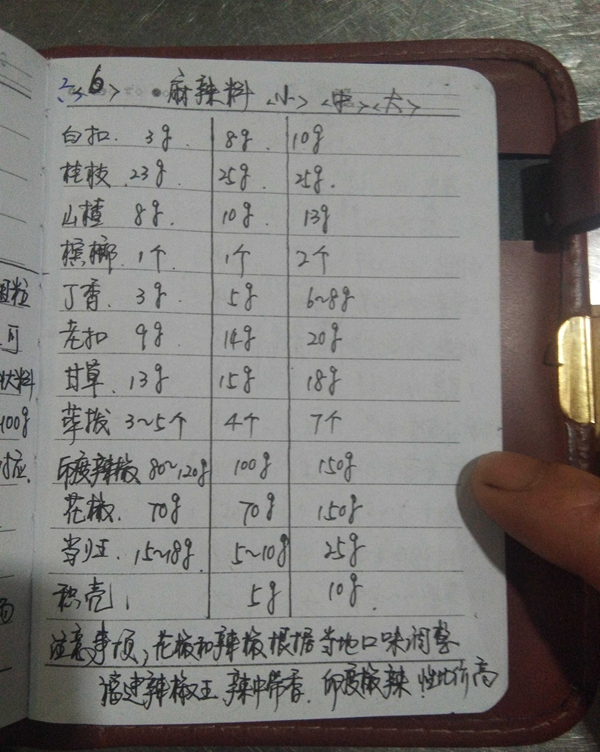 <6> 麻辣料 <小> <中> <大>
白扣. 3g. 8g. 10g
桂枝. 23g. 25g. 25g.
山楂 8g. 10g. 13g
槟榔. 1个. 1个 2个
丁香. 3g. 5g 6~8g
老扣 9g. 14g. 20g
甘草. 13g 15g 18g
荜拨 3~5个 4个 7个
印度辣椒 80~120g 100g 150g
花椒. 70g 70g 150g
当归. 15~18g 5~10g 25g
枳壳 5g 10g.
注意事项, 花椒和辣椒根据当地口味调整
福建辣椒王 辣中带香. 印度椒辣 性比价高
粗粒
可
料
100g
对应.